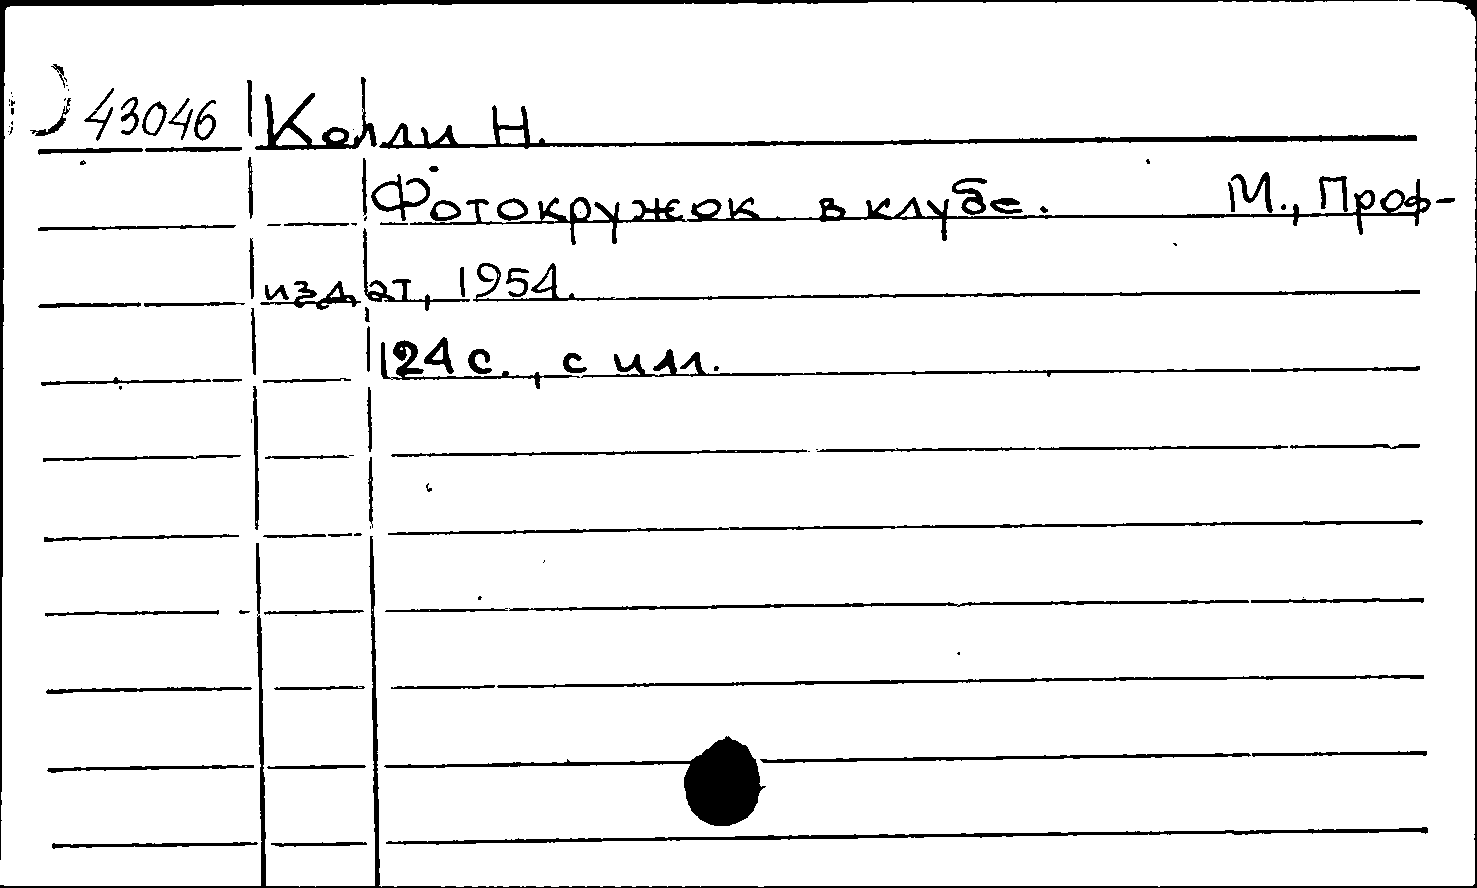 43046 Колли Н.
Фотокружок в клубе. М., Проф-
издат, 1954.
124 с., с илл.